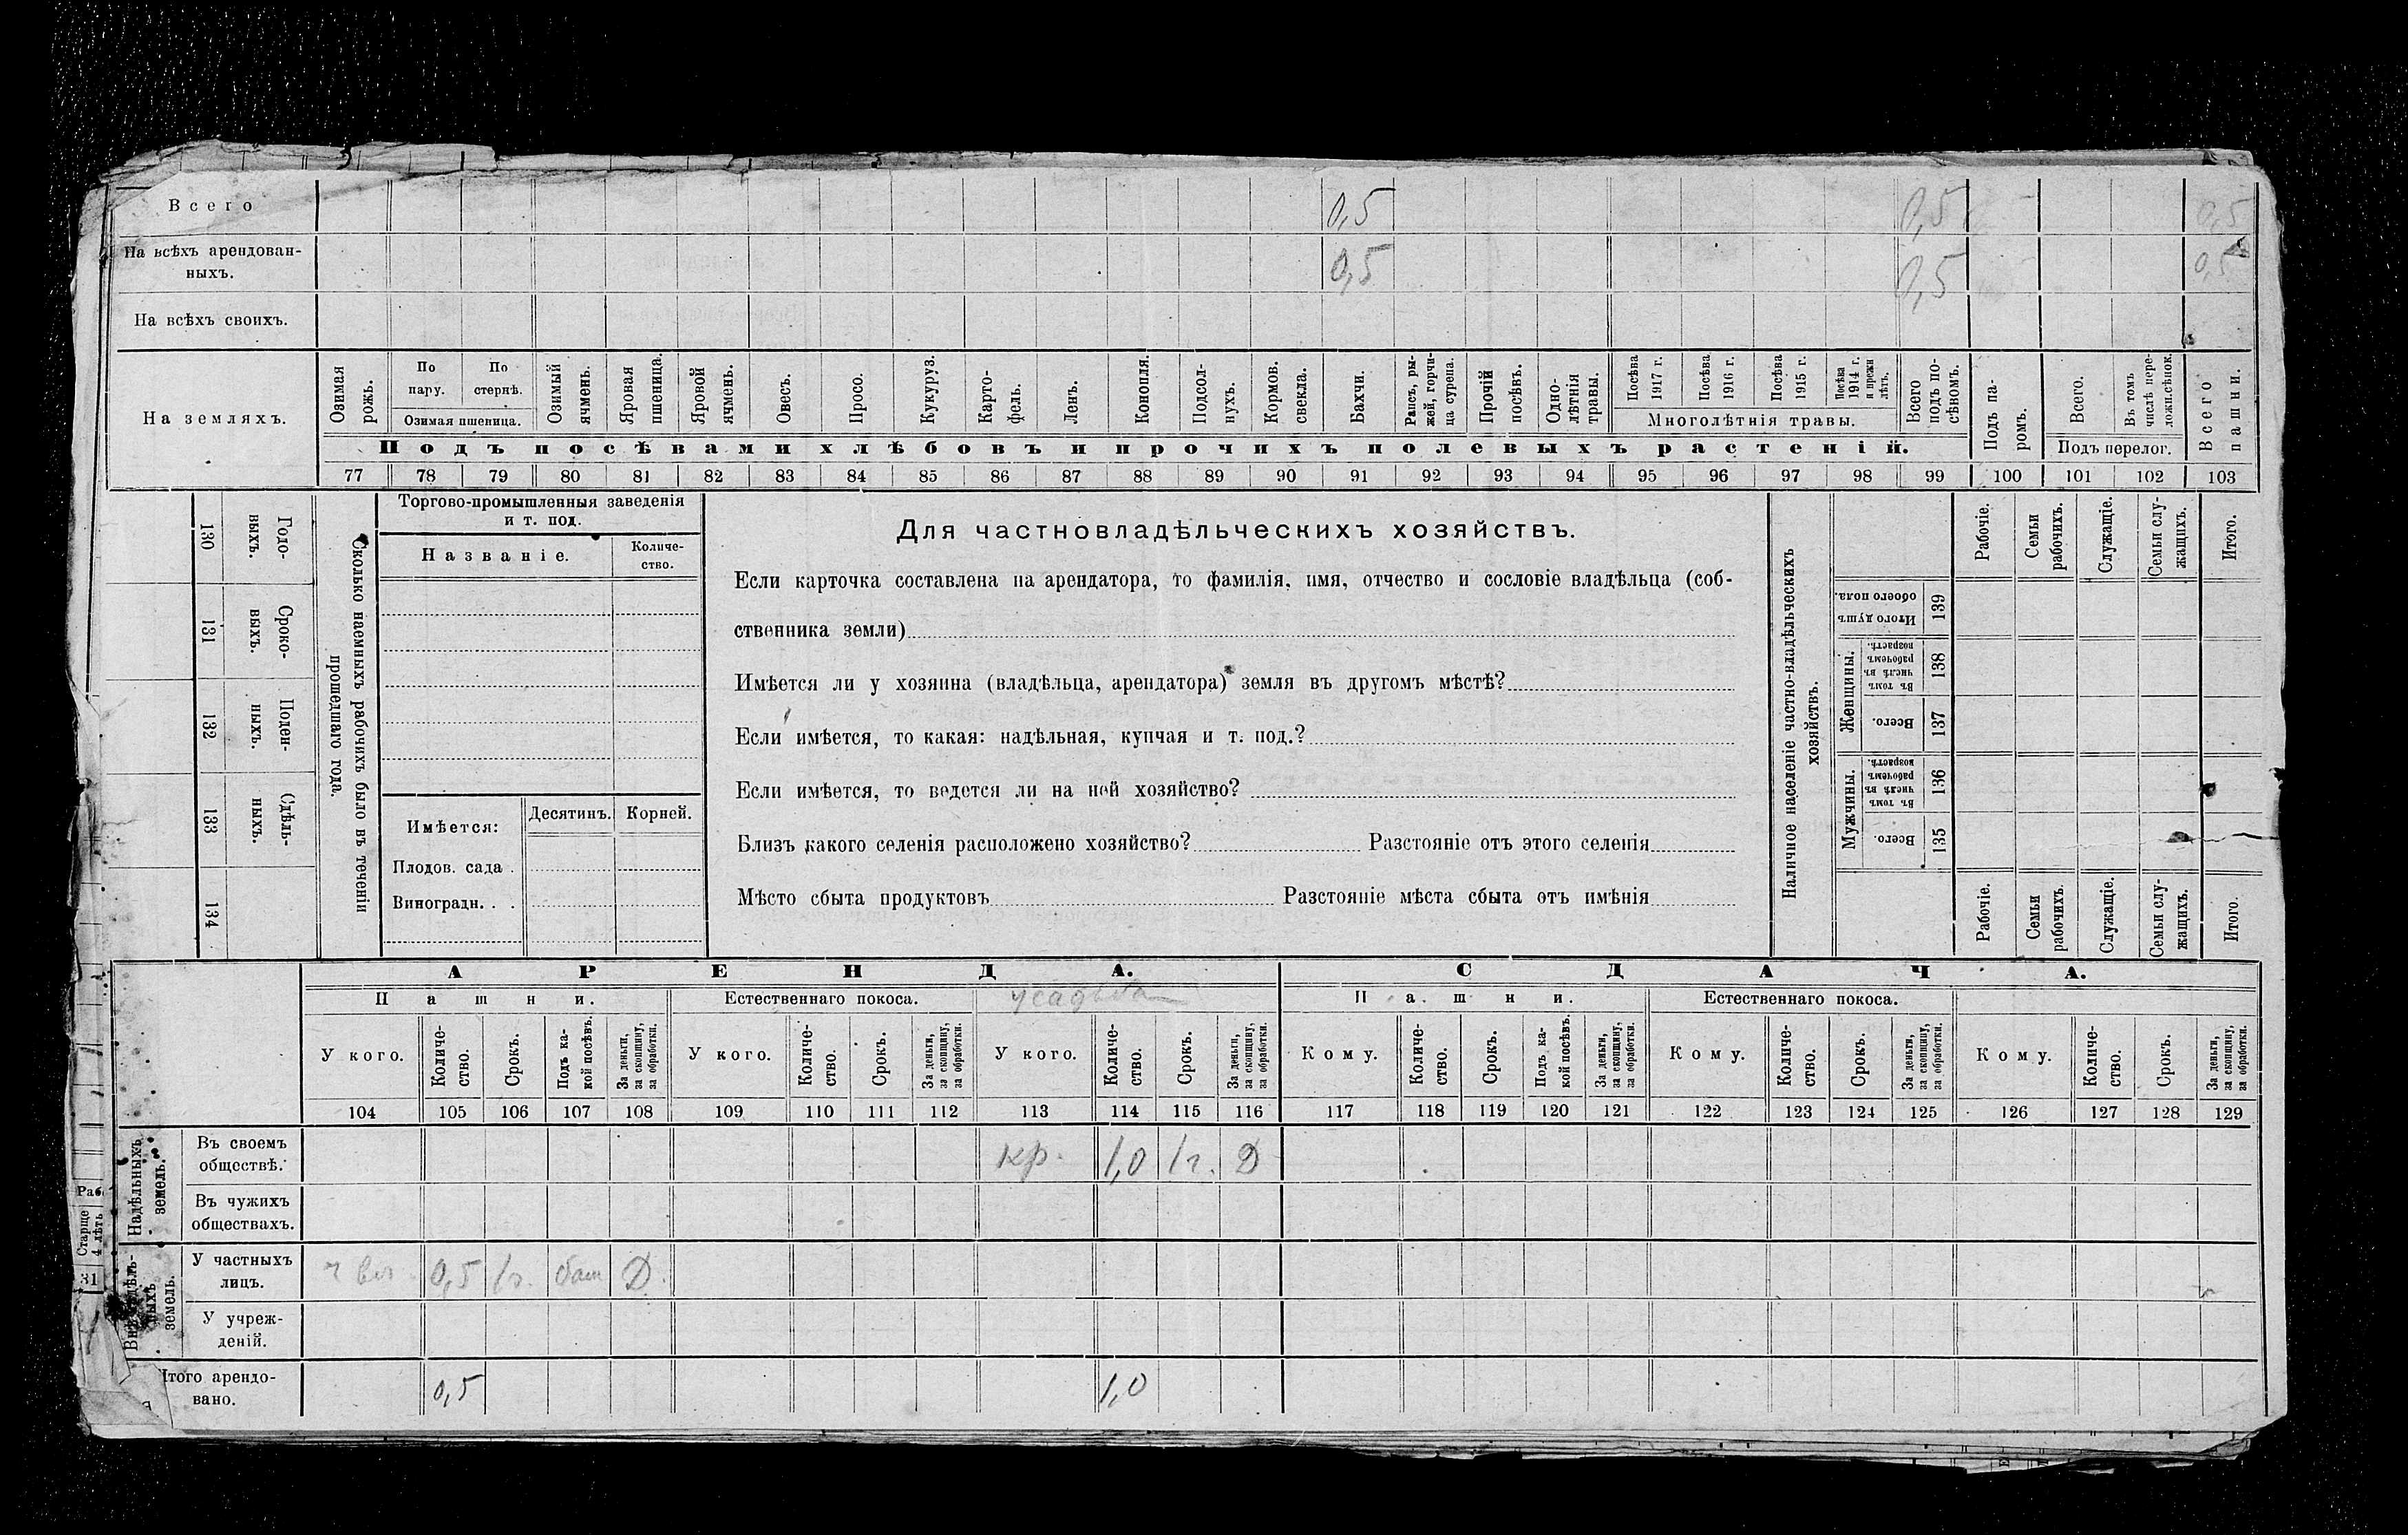 Всего 0,5 0,5 0,5
На всѣхъ арендован-
ныхъ. 0,5 0,5 0,5
На всѣхъ своихъ.
На земляхъ.
Озимая рожь.
По пару.
По стернѣ.
Озимая пшеница.
Озимый ячмень.
Яровая пшеница.
Яровой ячмень.
Овесъ.
Просо.
Кукуруз.
Карто-
фель.
Ленъ.
Конопля.
Подсол-
нухъ.
Кормов. свекла.
Бахчи.
Рапсъ, ры-
жей, горчи-
ца сурепа.
Прочій посѣвъ.
Одно-
лѣтнія травы.
Посѣва 1917 г.
Посѣва 1916 г.
Посѣва 1915 г.
Посѣва 1914 г. и прежн лѣтъ.
Многолѣтнія травы.
Всего подъ по-
сѣвомъ.
Подъ па-
ромъ.
Всего.
Въ томъ числѣ пере-
ложн.сѣнок.
Подъ перелог.
Всего пашни.
Подъ посѣвами хлѣбовъ и прочихъ полевыхъ растеній.
77 78 79 80 81 82 83 84 85 86 87 88 89 90 91 92 93 94 95 96 97 98 99 100 101 102 103
130 Годо-
выхъ.
131 Сроко-
выхъ.
132 Поден-
ныхъ.
133 Сдѣль-
ныхъ.
134
Сколько наемныхъ рабочихъ было въ теченіи
прошедшаго года.
Торгово-промышленныя заведенія
и т. под.
Названіе.
Количе-
ство.
Имѣется:
Десятинъ.
Корней.
Плодов. сада .
Виноградн. . .
Для частновладѣльческихъ хозяйствъ.
Если карточка составлена на арендатора, то фамилія, имя, отчество и сословіе владѣльца (соб-
ственника земли)
Имѣется ли у хозяина (владѣльца, арендатора) земля въ другомъ мѣстѣ?
Если имѣется, то какая: надѣльная, купчая и т. под.?
Если имѣется, то ведется ли на ней хозяйство?
Близъ какого селенія расположено хозяйство? Разстояніе отъ этого селенія
Мѣсто сбыта продуктовъ Разстояніе мѣста сбыта отъ имѣнія
Наличное населеніе частно-владѣльческихъ
хозяйствъ.
Рабочіе.
Семьи рабочихъ.
Служащіе.
Семьи слу-
жащихъ.
Итого.
Итого душъ обоего пола. 139
Женщины.
Въ томъ числѣ въ рабочемъ возрастѣ. 138
Всего. 137
Мужчины.
Въ томъ числѣ въ рабочемъ возрастѣ. 136
Всего. 135
Рабочіе.
Семьи рабочихъ.
Служащіе.
Семьи слу-
жащихъ.
Итого.
АРЕНДА. СДАЧА.
Пашни. Естественнаго покоса. усадьба Пашни. Естественнаго покоса.
У кого.
Количе-
ство.
Срокъ.
Подъ ка-
кой посѣвъ.
За деньги,
за скопщину,
за обработки.
У кого.
Количе-
ство.
Срокъ.
За деньги,
за скопщину,
за обработки.
У кого.
Количе-
ство.
Срокъ.
За деньги,
за скопщину,
за обработки.
Кому.
Количе-
ство.
Срокъ.
Подъ ка-
кой посѣвъ.
За деньги,
за скопщину,
за обработки.
Кому.
Количе-
ство.
Срокъ.
За деньги,
за скопщину,
за обработки.
Кому.
Количе-
ство.
Срокъ.
За деньги,
за скопщину,
за обработки.
104 105 106 107 108 109 110 111 112 113 114 115 116 117 118 119 120 121 122 123 124 125 126 127 128 129
Надѣльныхъ
земель.
Въ своемъ
обществѣ. кр. 1,0 1г. Д
Въ чужихъ
обществахъ.
Внѣнадѣль-
ныхъ
земель.
У частныхъ
лицъ. ч вл. 0,5 1г. баш Д.
У учреж-
деній.
Итого арендо-
вано. 0,5 1,0
Раб.
Старше
4 лѣтъ
31